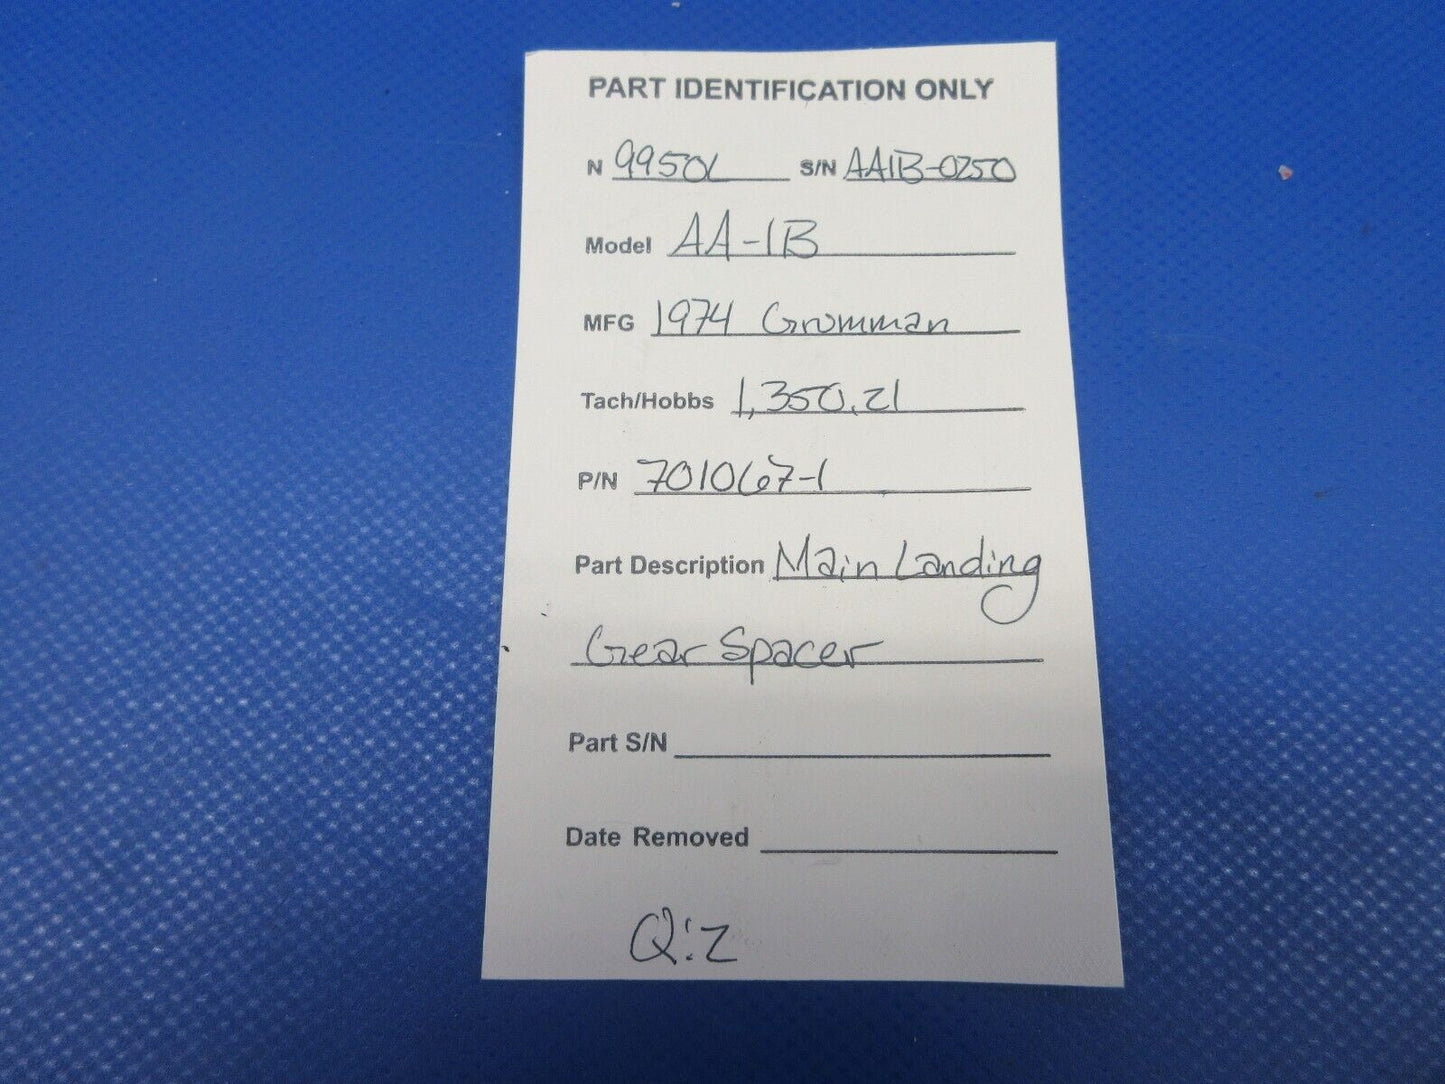 PART IDENTIFICATION ONLY
N 9950L S/N AA1B-0250
Model AA-1B
MFG 1974 Grumman
Tach/Hobbs 1,350.21
P/N 701067-1
Part Description Main Landing
Gear Spacer
Part S/N
Date Removed
Q:2